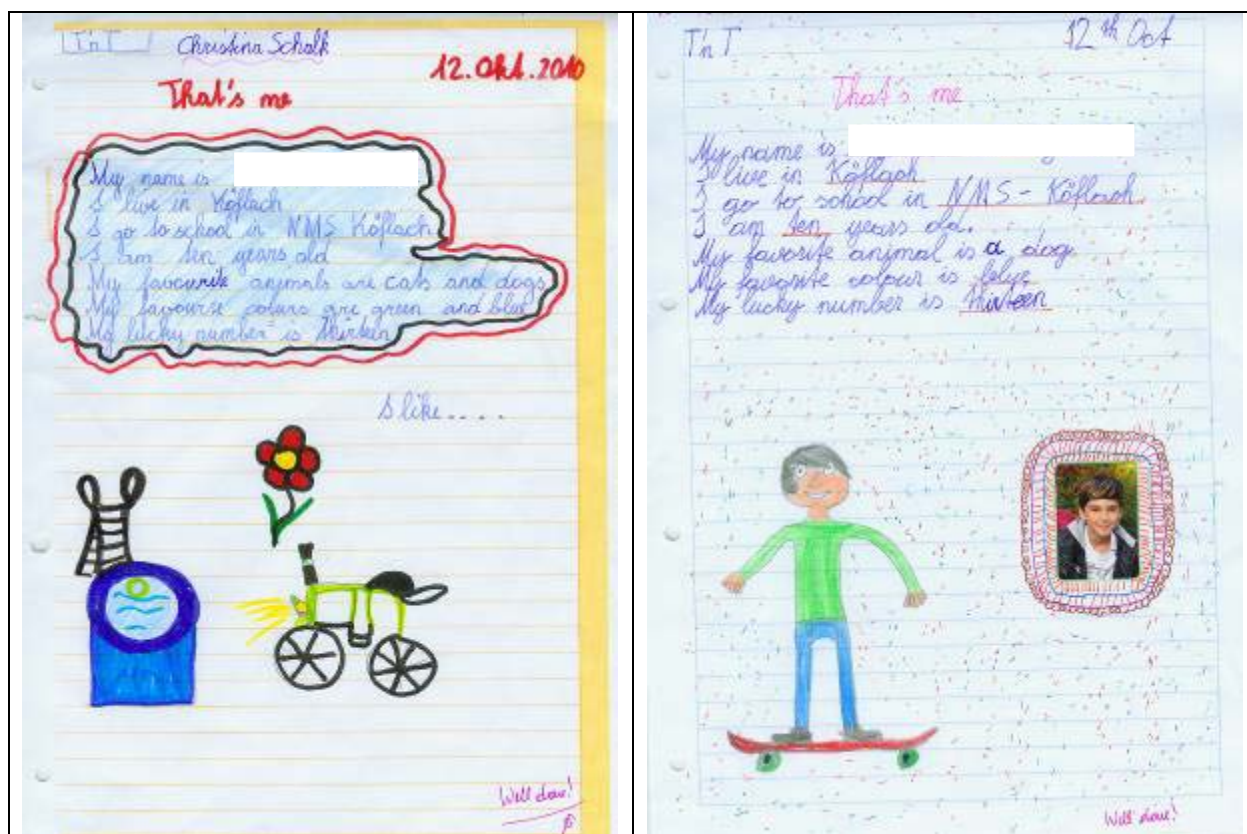 T'n T Christina Schalk
12. Okt. 2010
That's me
My name is
I live in Köflach
I go to school in NMS Köflach
I am ten years old
My favourite animals are cats and dogs
My favourite colours are green and blue
My lucky number is thirteen
I like....
Well done!
T'n T 12th Oct
That's me
My name is
I live in Köflach
I go to school in NMS - Köflach.
I am ten years old.
My favorite animal is a dog
My favorite colour is
My lucky number is thirteen
Well done!